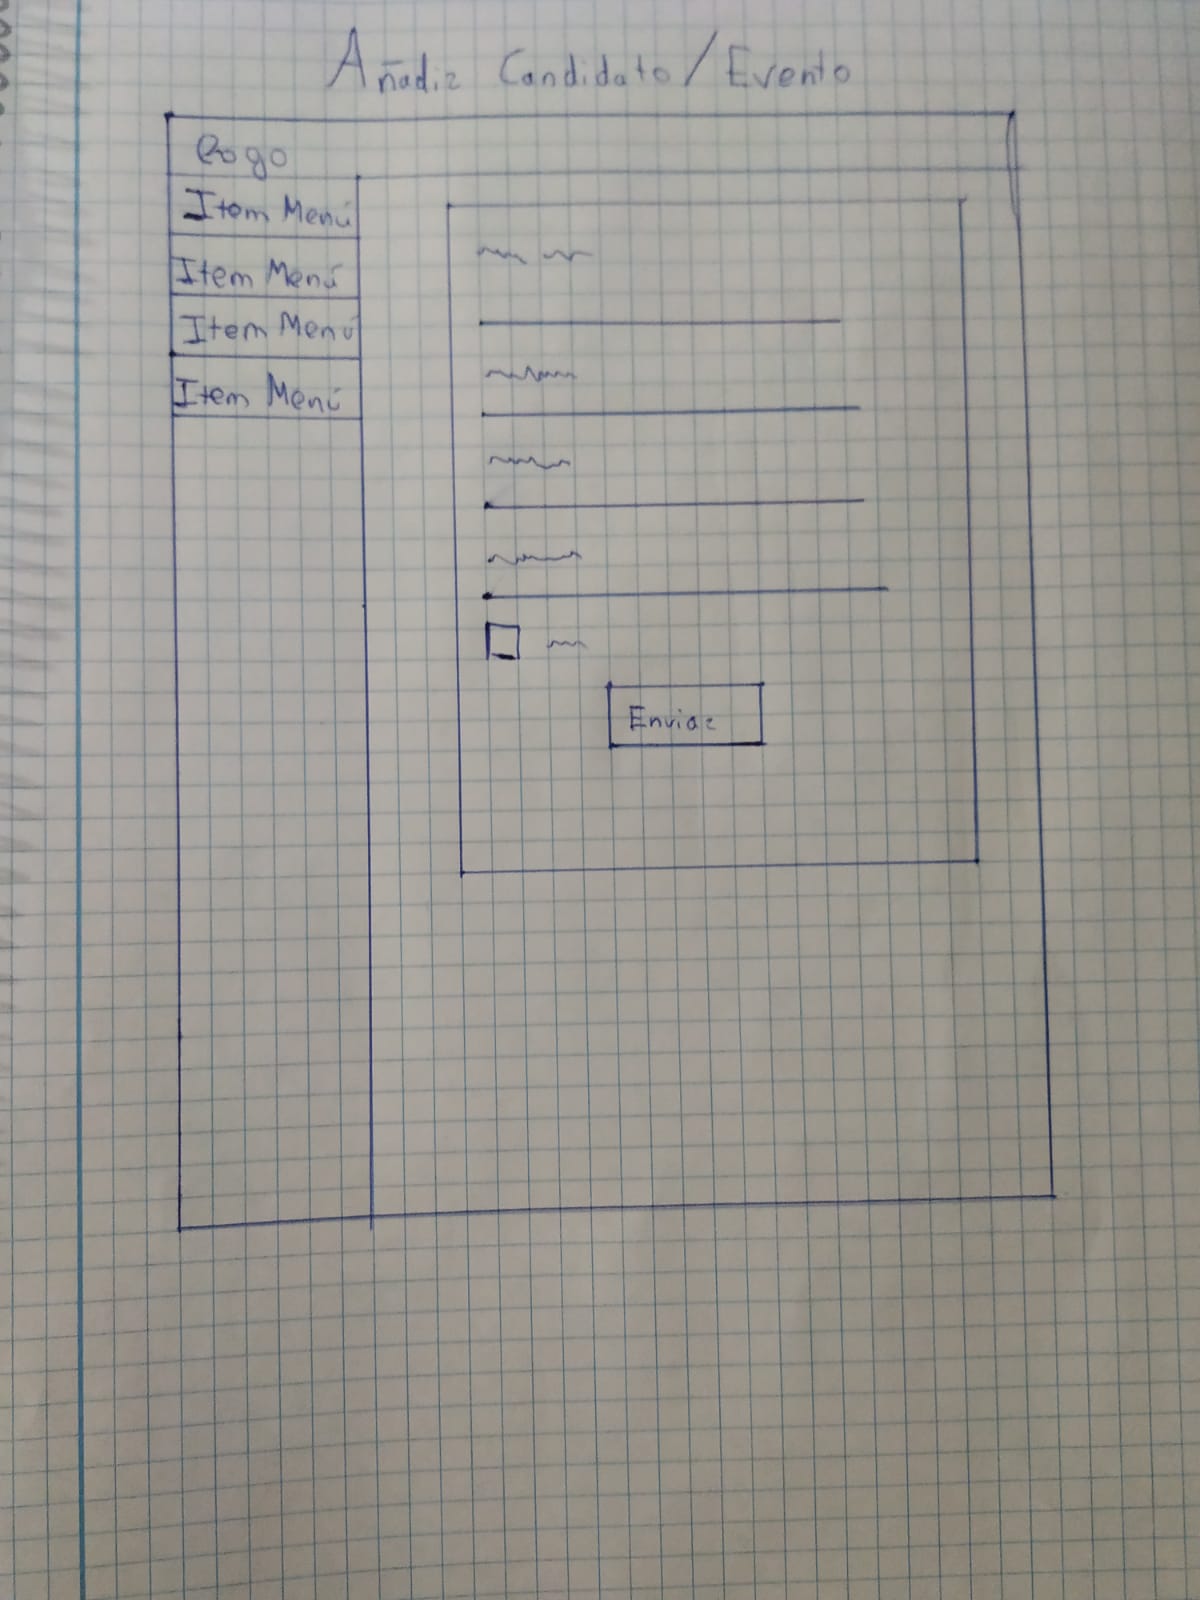 Añadir Candidato/Evento
Logo
Item Menú
Item Menú
Item Menú
Item Menú
Enviar